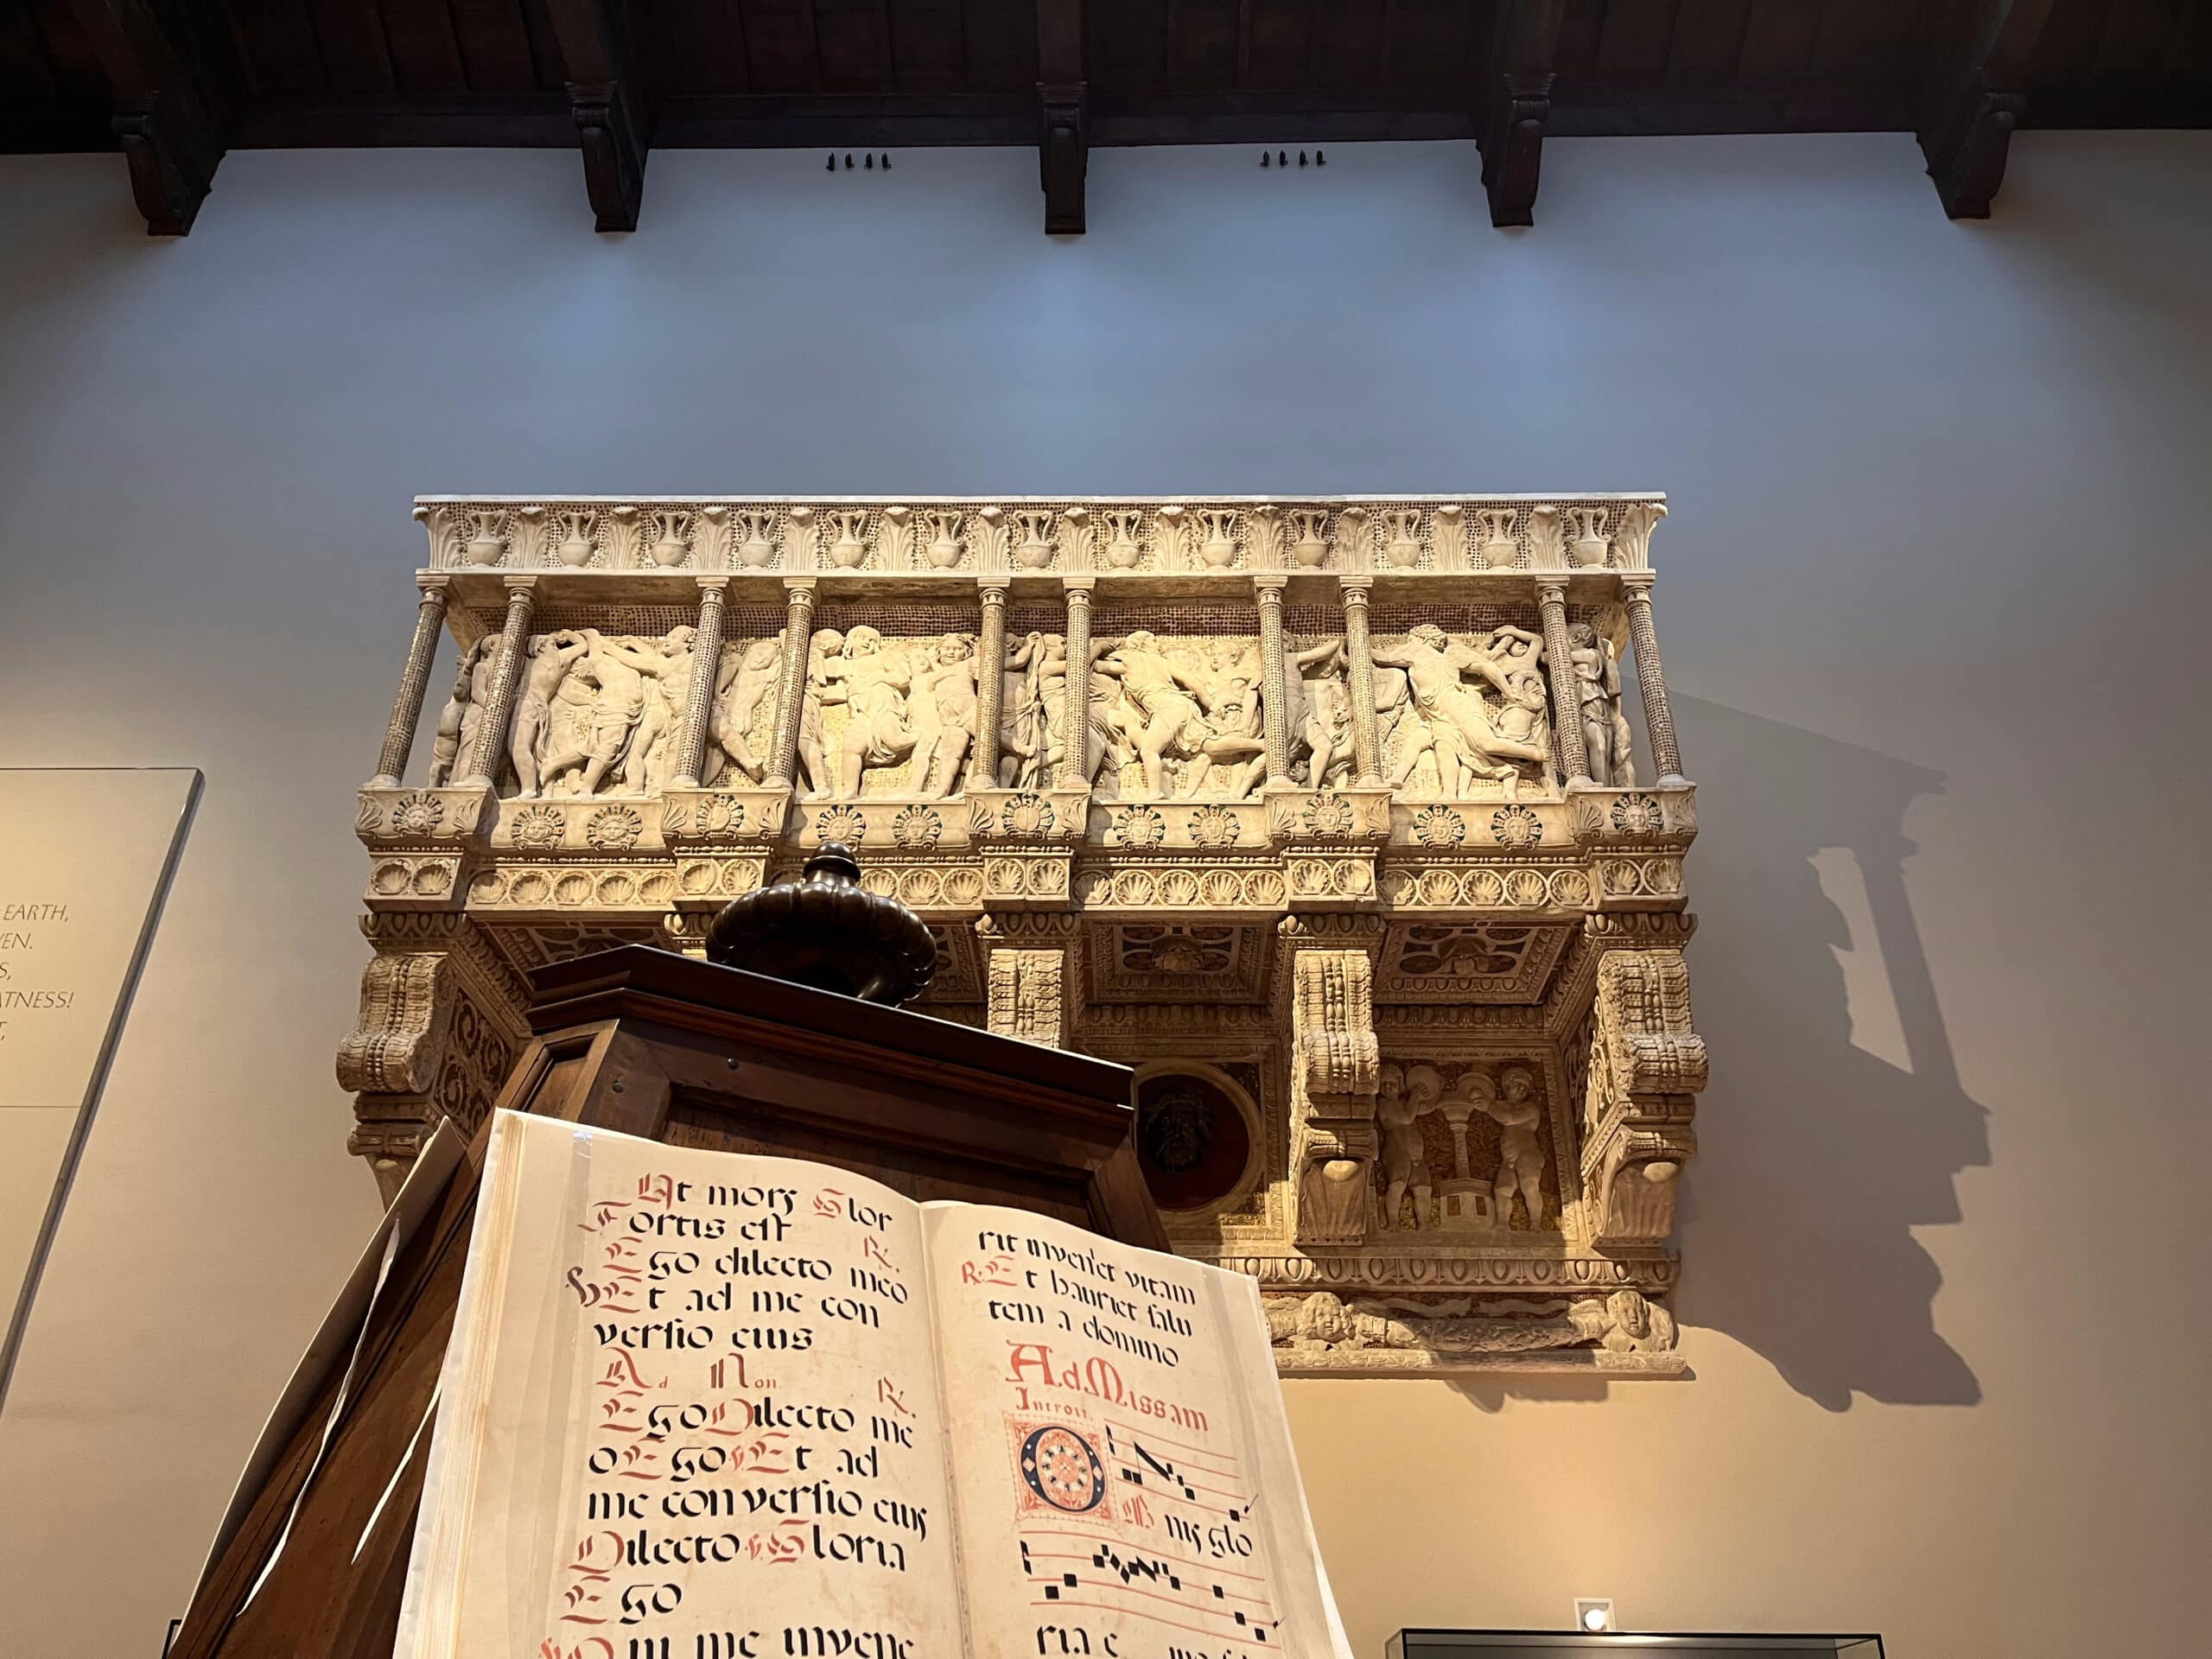 EARTH,
EN.
S,
ATNESS!
T,
At mors Glor
ortis est
℟.
Ego dilecto meo
Et ad me con
versio eius
Ad Non.
℟.
Ego Dilecto me
o Ego ℣. Et ad
me conversio eius
Dilecto ℣. Gloria
Ego
Qui me invene
rit inveniet vitam
℟. Et hauriet salu
tem a domino
Ad Missam
Introit.
OMnis glo
ria e